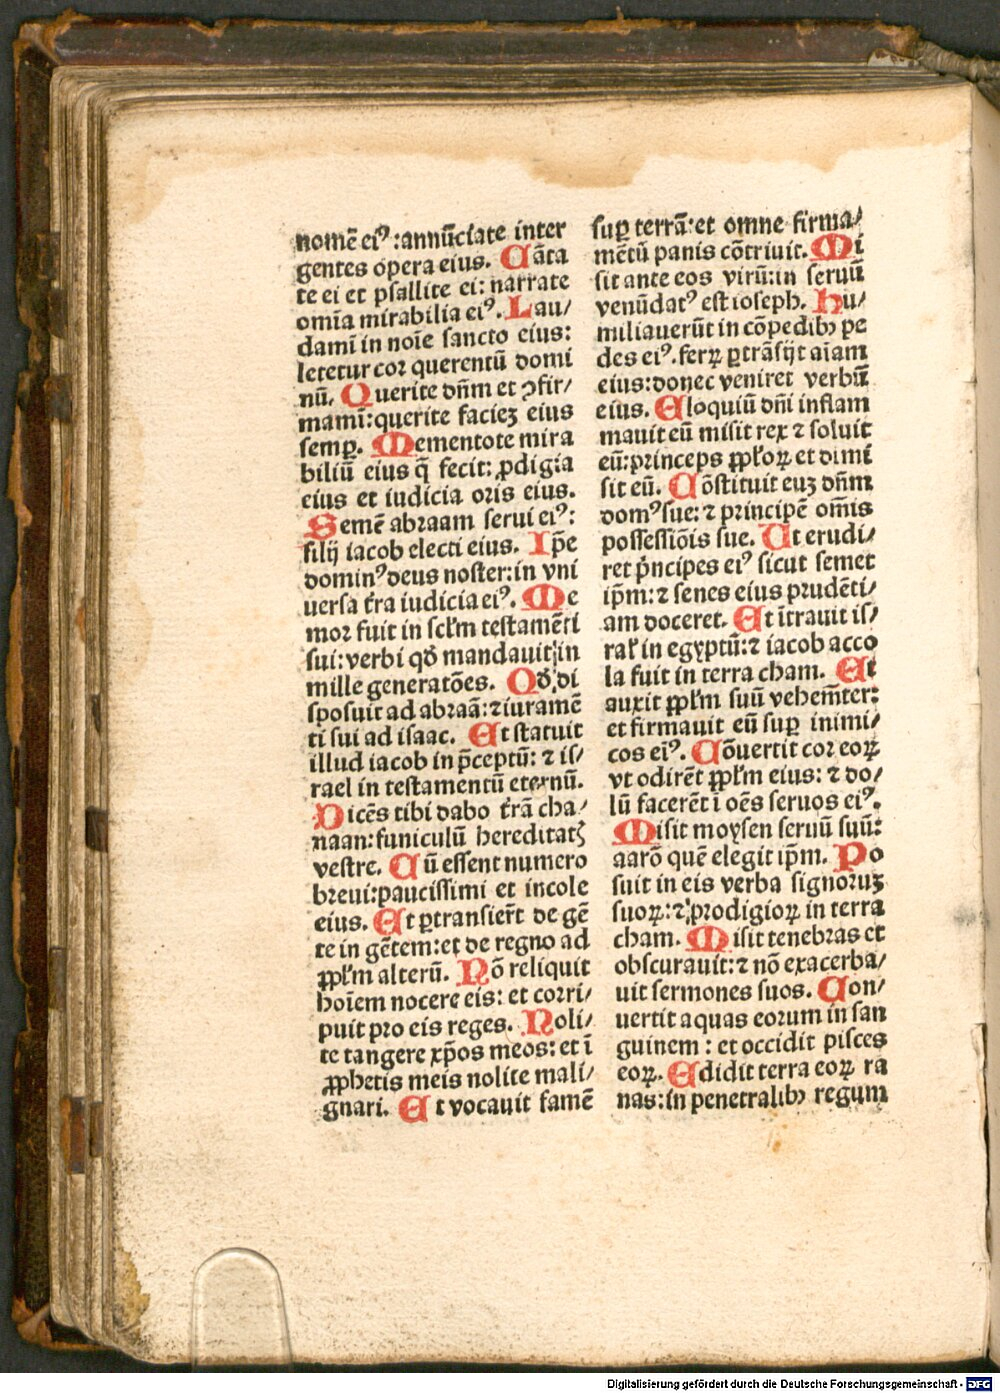 nomē eiꝰ:annūciate inter
gentes opera eius. Cāta
te ei et psallite ei: narrate
omīa mirabilia eiꝰ. Lau/
damī in noīe sancto eius:
letetur cor querentū domi
nū. Querite dn̄m et ꝯfir/
mamī:querite faciez eius
semp̱. Mementote mira
biliū eius q̄ fecit: ꝓdigia
eius et iudicia oris eius.
Semē abraam serui eiꝰ:
filij iacob electi eius. Ip̄e
dominꝰ deus noster:in vni
uersa t̄ra iudicia eiꝰ. Me
mor fuit in sclm̄ testamēti
sui:verbi qd̄ mandauit in
mille generatōes. Qd̄ di
sposuit ad abraā:⁊ iuramē
ti sui ad isaac. Et statuit
illud iacob in p̄ceptū: ⁊ is/
rael in testamentū eternū.
Dicēs tibi dabo t̄rā cha/
naan:funiculū hereditatꝭ
vestre. Cū essent numero
breui:paucissimi et incole
eius. Et ꝑtransier̄t de gē
te in gētem:et de regno ad
ppl̄m alterū. Nō reliquit
hoīem nocere eis: et corri/
puit pro eis reges. Noli/
te tangere xp̄os meos: et ī
ꝓphetis meis nolite mali/
gnari. Et vocauit famē
suꝑ terrā:et omne firma/
mētū panis cōtriuit. Mi
sit ante eos virū:in seruū
venūdatꝰ est ioseph. Hu/
miliauerūt in cōpedibꝫ pe
des eiꝰ.ferꝝ ꝑtrāsijt aīam
eius:donec veniret verbū
eius. Eloquiū dn̄i inflam
mauit eū misit rex ⁊ soluit
eū:princeps pplo̵ꝝ et dimi
sit eū. Cōstituit euz dn̄m
domꝰ sue: ⁊ principē om̄is
possessiōis sue. Ut erudi/
ret p̄ncipes eiꝰ sicut semet
ip̄m: ⁊ senes eius prudēti/
am doceret. Et ītrauit is/
ral̄ in egyptū:⁊ iacob acco
la fuit in terra cham. Et
auxit ppl̄m suū vehem̄ter:
et firmauit eū suꝑ inimi/
cos eiꝰ. Cōuertit cor eoꝝ
vt odirēt ppl̄m eius: ⁊ do/
lū facerēt ī oēs seruos eiꝰ.
Misit moysen seruū suū:
aarō quē elegit ip̄m. Po
suit in eis verba signoruz
suoꝝ:⁊ prodigioꝝ in terra
cham. Misit tenebras et
obscurauit:⁊ nō exacerba/
uit sermones suos. Con/
uertit aquas eorum in san
guinem : et occidit pisces
eoꝝ. Edidit terra eoꝝ ra
nas:in penetralibꝫ regum
Digitalisierung gefördert durch die Deutsche Forschungsgemeinschaft - DFG